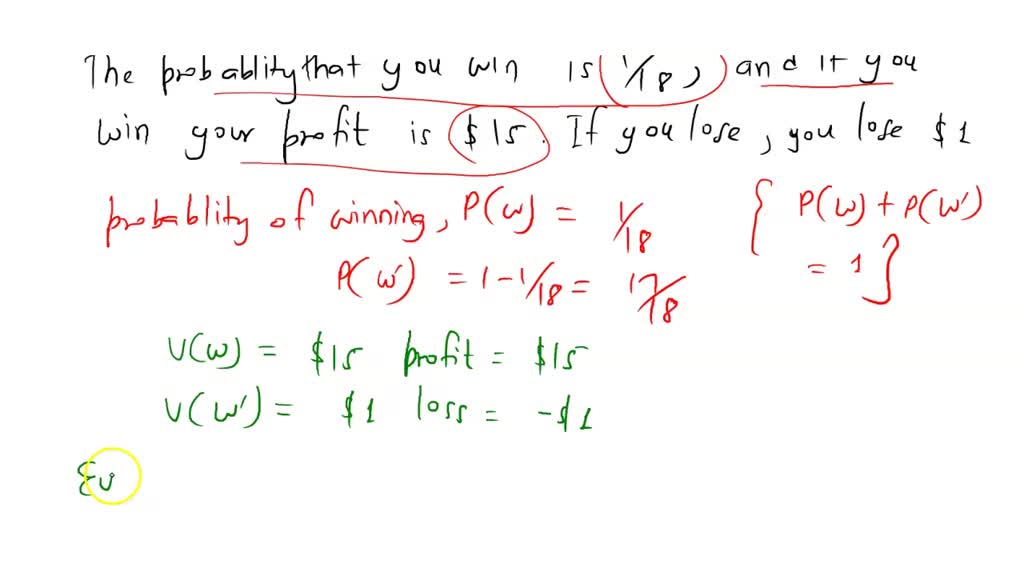 The probablity that you win is 1/18, and if you
win your profit is $15. If you lose, you lose $1
probablity of winning, P(w) = 1/18 { P(w) + P(w')
P(w') = 1 - 1/18 = 17/18 = 1 }
V(w) = $15 profit = $15
V(w') = $1 loss = -$1
Ev